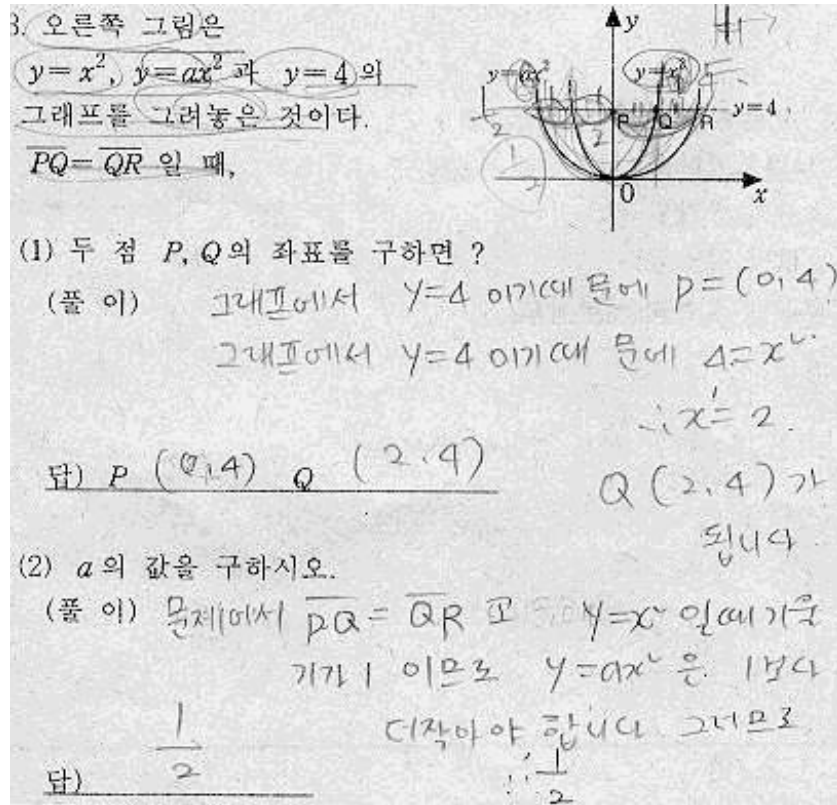 3. 오른쪽 그림은
y=x², y=ax²과 y=4의
그래프를 그려놓은 것이다.
PQ=QR 일 때,
y
y=ax²
y=x²
y=4
P Q R
2
2
1
2
0
x
(1) 두 점 P, Q의 좌표를 구하면 ?
(풀 이) 그래프에서 y=4 이기때문에 P=(0,4)
그래프에서 y=4 이기때문에 4=x²
∴x=2.
답) P (0,4) Q (2,4)
Q (2,4)가
됩니다
(2) a의 값을 구하시오.
(풀 이) 문제에서 PQ=QR 고 y=x² 일때 기울
기가 1 이므로 y=ax² 은 1보다
더작아야 합니다 그러므로
∴ 1/2
답) 1/2